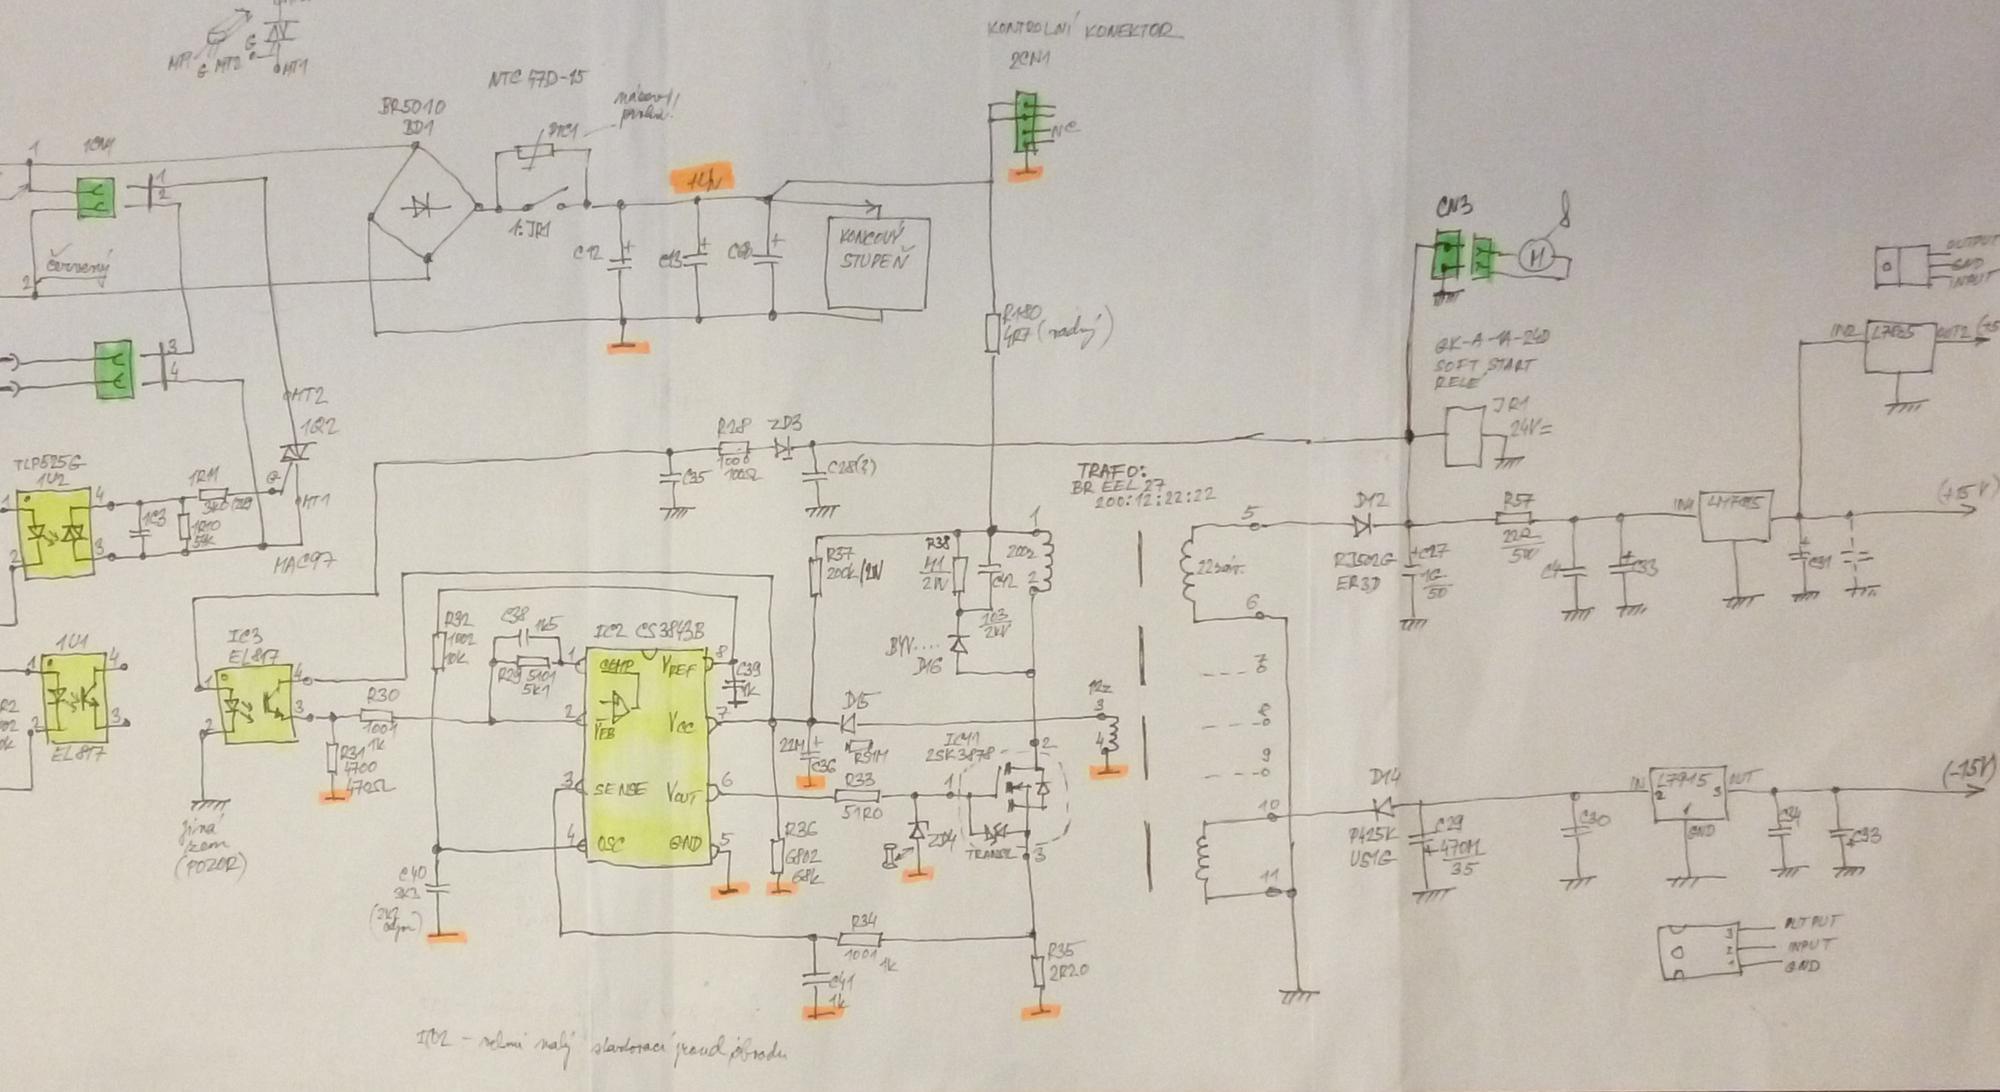 KONTROLNÍ KONEKTOR
2CN1
NC
MT1
G
MT2
G
MT1
NTC 47D-15
BR5010
BD1
1:JR1
1CN1
1
1
2
2
červený
3
4
C12
C13
KONCOVÝ
STUPEŇ
R180
4R7 (vadný)
CN3
M
OUTPUT
GND
INPUT
QK-A-1A-24D
SOFT START
RELÉ
JR1
24V=
IN2
L7805
OUT2
MT2
1Q2
G
MT1
MAC97
TLP525G
1U2
1
2
4
3
1C3
1R11
1R10
R28
100Ω
ZD3
C35
C28(?)
TRAFO:
BR EEL 27
200:12:22:22
1
200z
2
R37
200k/2W
R38
M1
2W
C42
103
2kV
BYV....
D16
5
22záv.
6
7
8
9
10
11
D12
ER3D
C27
1G
50
R57
22R
5W
C4
C33
IN1
LM7815
C31
(+15V)
1U1
EL817
1
2
4
3
IC3
EL817
1
2
4
3
jiná
zem
(POZOR)
R30
1001
1k
R31
4700
470Ω
R32
1002
10k
C38
1k5
R29 5101
5k1
IC2 CS3843B
1
COMP
VREF
8
2
VFB
VCC
7
3
SENSE
VOUT
6
4
OSC
GND
5
C39
1k
D15
R51M
22M
C36
12z
3
4
IC41
2SK3878
1
2
3
TRANSIL
R33
51R0
ZD4
R36
6802
68k
C40
3k3
R34
1001
1k
C41
1k
R35
2R20
D14
P425K
US1G
C29
470M
35
C30
IN
L7915
OUT
2
3
1
GND
C34
C33
(-15V)
3
OUTPUT
2
INPUT
1
GND
IC2 - velmi malý startovací proud obvodu